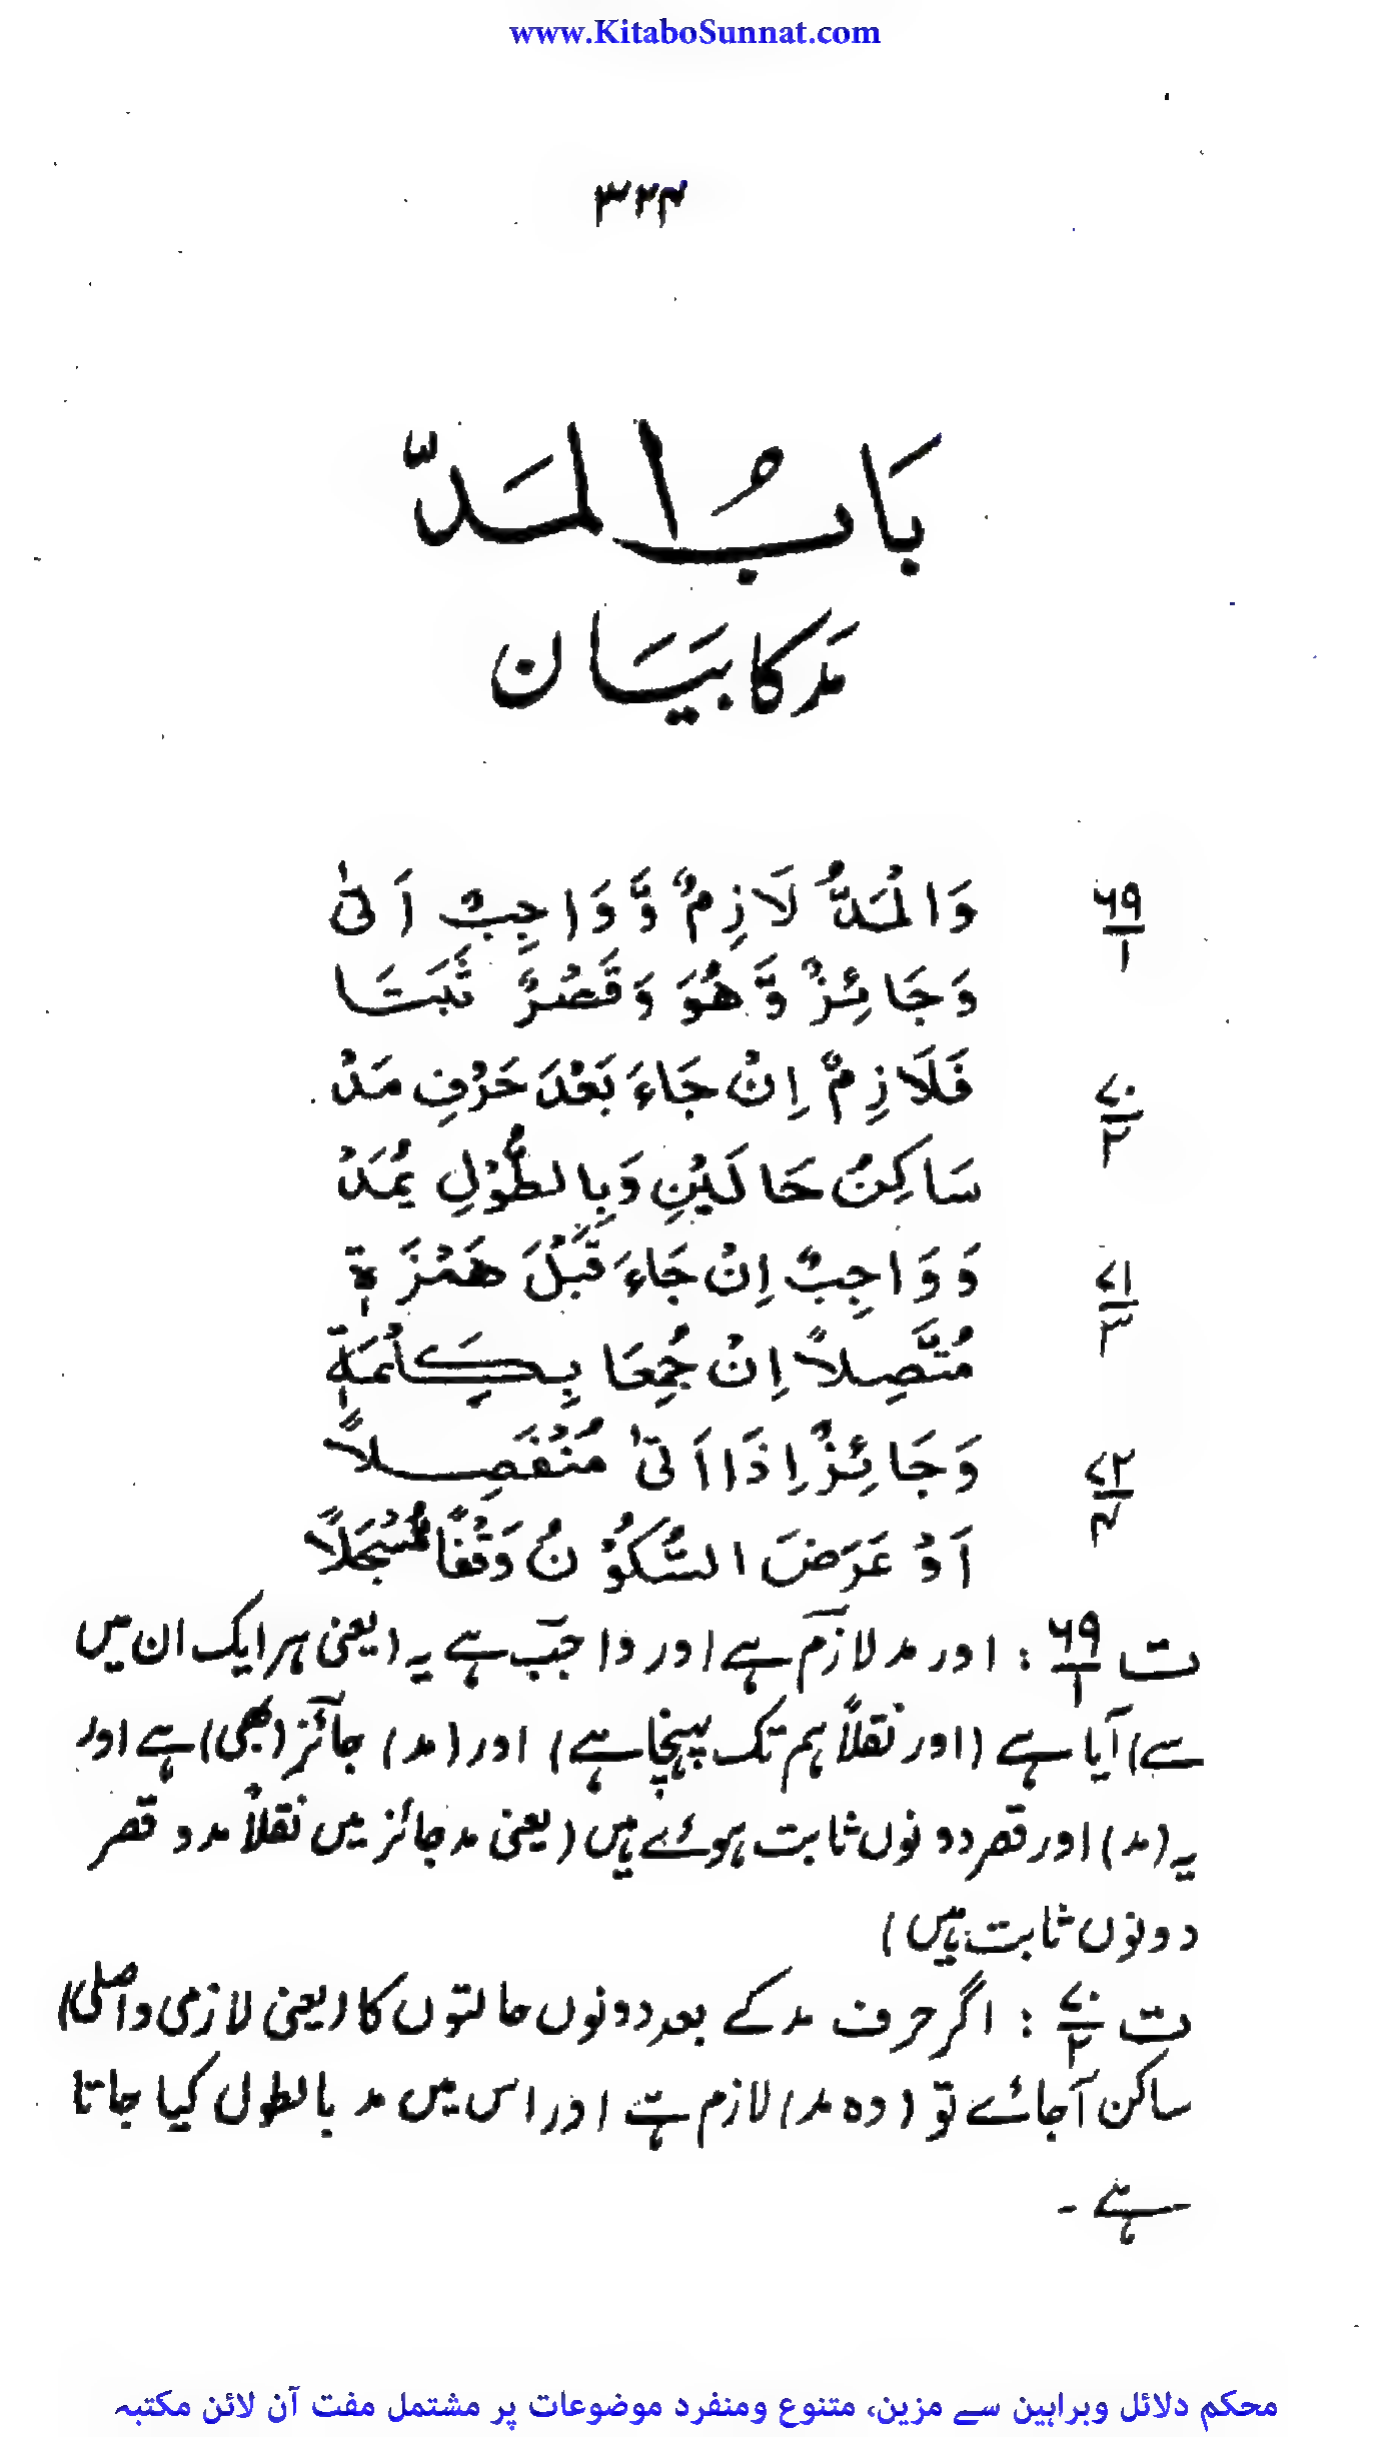 www.KitaboSunnat.com
۳۲۴
بَابُ الْمَدِّ
مَد کا بَیَان
۶۹/۱ وَالْمَدُّ لَازِمٌ وَّ وَاجِبٌ اَتٰی
وَجَائِزٌ وَّ هُوَ وَقَصْرٌ ثَبَتَا
۷۰/۲ فَلَازِمٌ اِنْ جَاءَ بَعْدَ حَرْفِ مَدْ
سَاكِنُ حَالَيْنِ وَبِالطُّوْلِ يُمَدْ
۷۱/۳ وَ وَاجِبٌ اِنْ جَاءَ قَبْلَ هَمْزَةٖ
مُتَّصِلًا اِنْ جُمِعَا بِكِلْمَةٖ
۷۲/۴ وَجَائِزٌ اِذَا اَتٰی مُنْفَصِلًا
اَوْ عَرَضَ السُّكُوْنُ وَقْفًا مُّسْجَلًا
ت ۶۹/۱ : اور مد لازم ہے اور واجب ہے یہ (یعنی ہر ایک ان میں
سے) آیا ہے (اور نقلاً ہم تک پہنچا ہے) اور (مد) جائز (بھی) ہے اور
یہ (مد) اور قصر دونوں ثابت ہوئے ہیں (یعنی مد جائز میں نقلاً مد و قصر
دونوں ثابت ہیں)
ت ۷۰/۲ : اگر حرف مد کے بعد دونوں حالتوں کا (یعنی لازمی واصلی)
ساکن آجائے تو (وہ مد) لازم ہے اور اس میں مد بالطول کیا جاتا
ہے ۔
محکم دلائل وبراہین سے مزین، متنوع ومنفرد موضوعات پر مشتمل مفت آن لائن مکتبہ